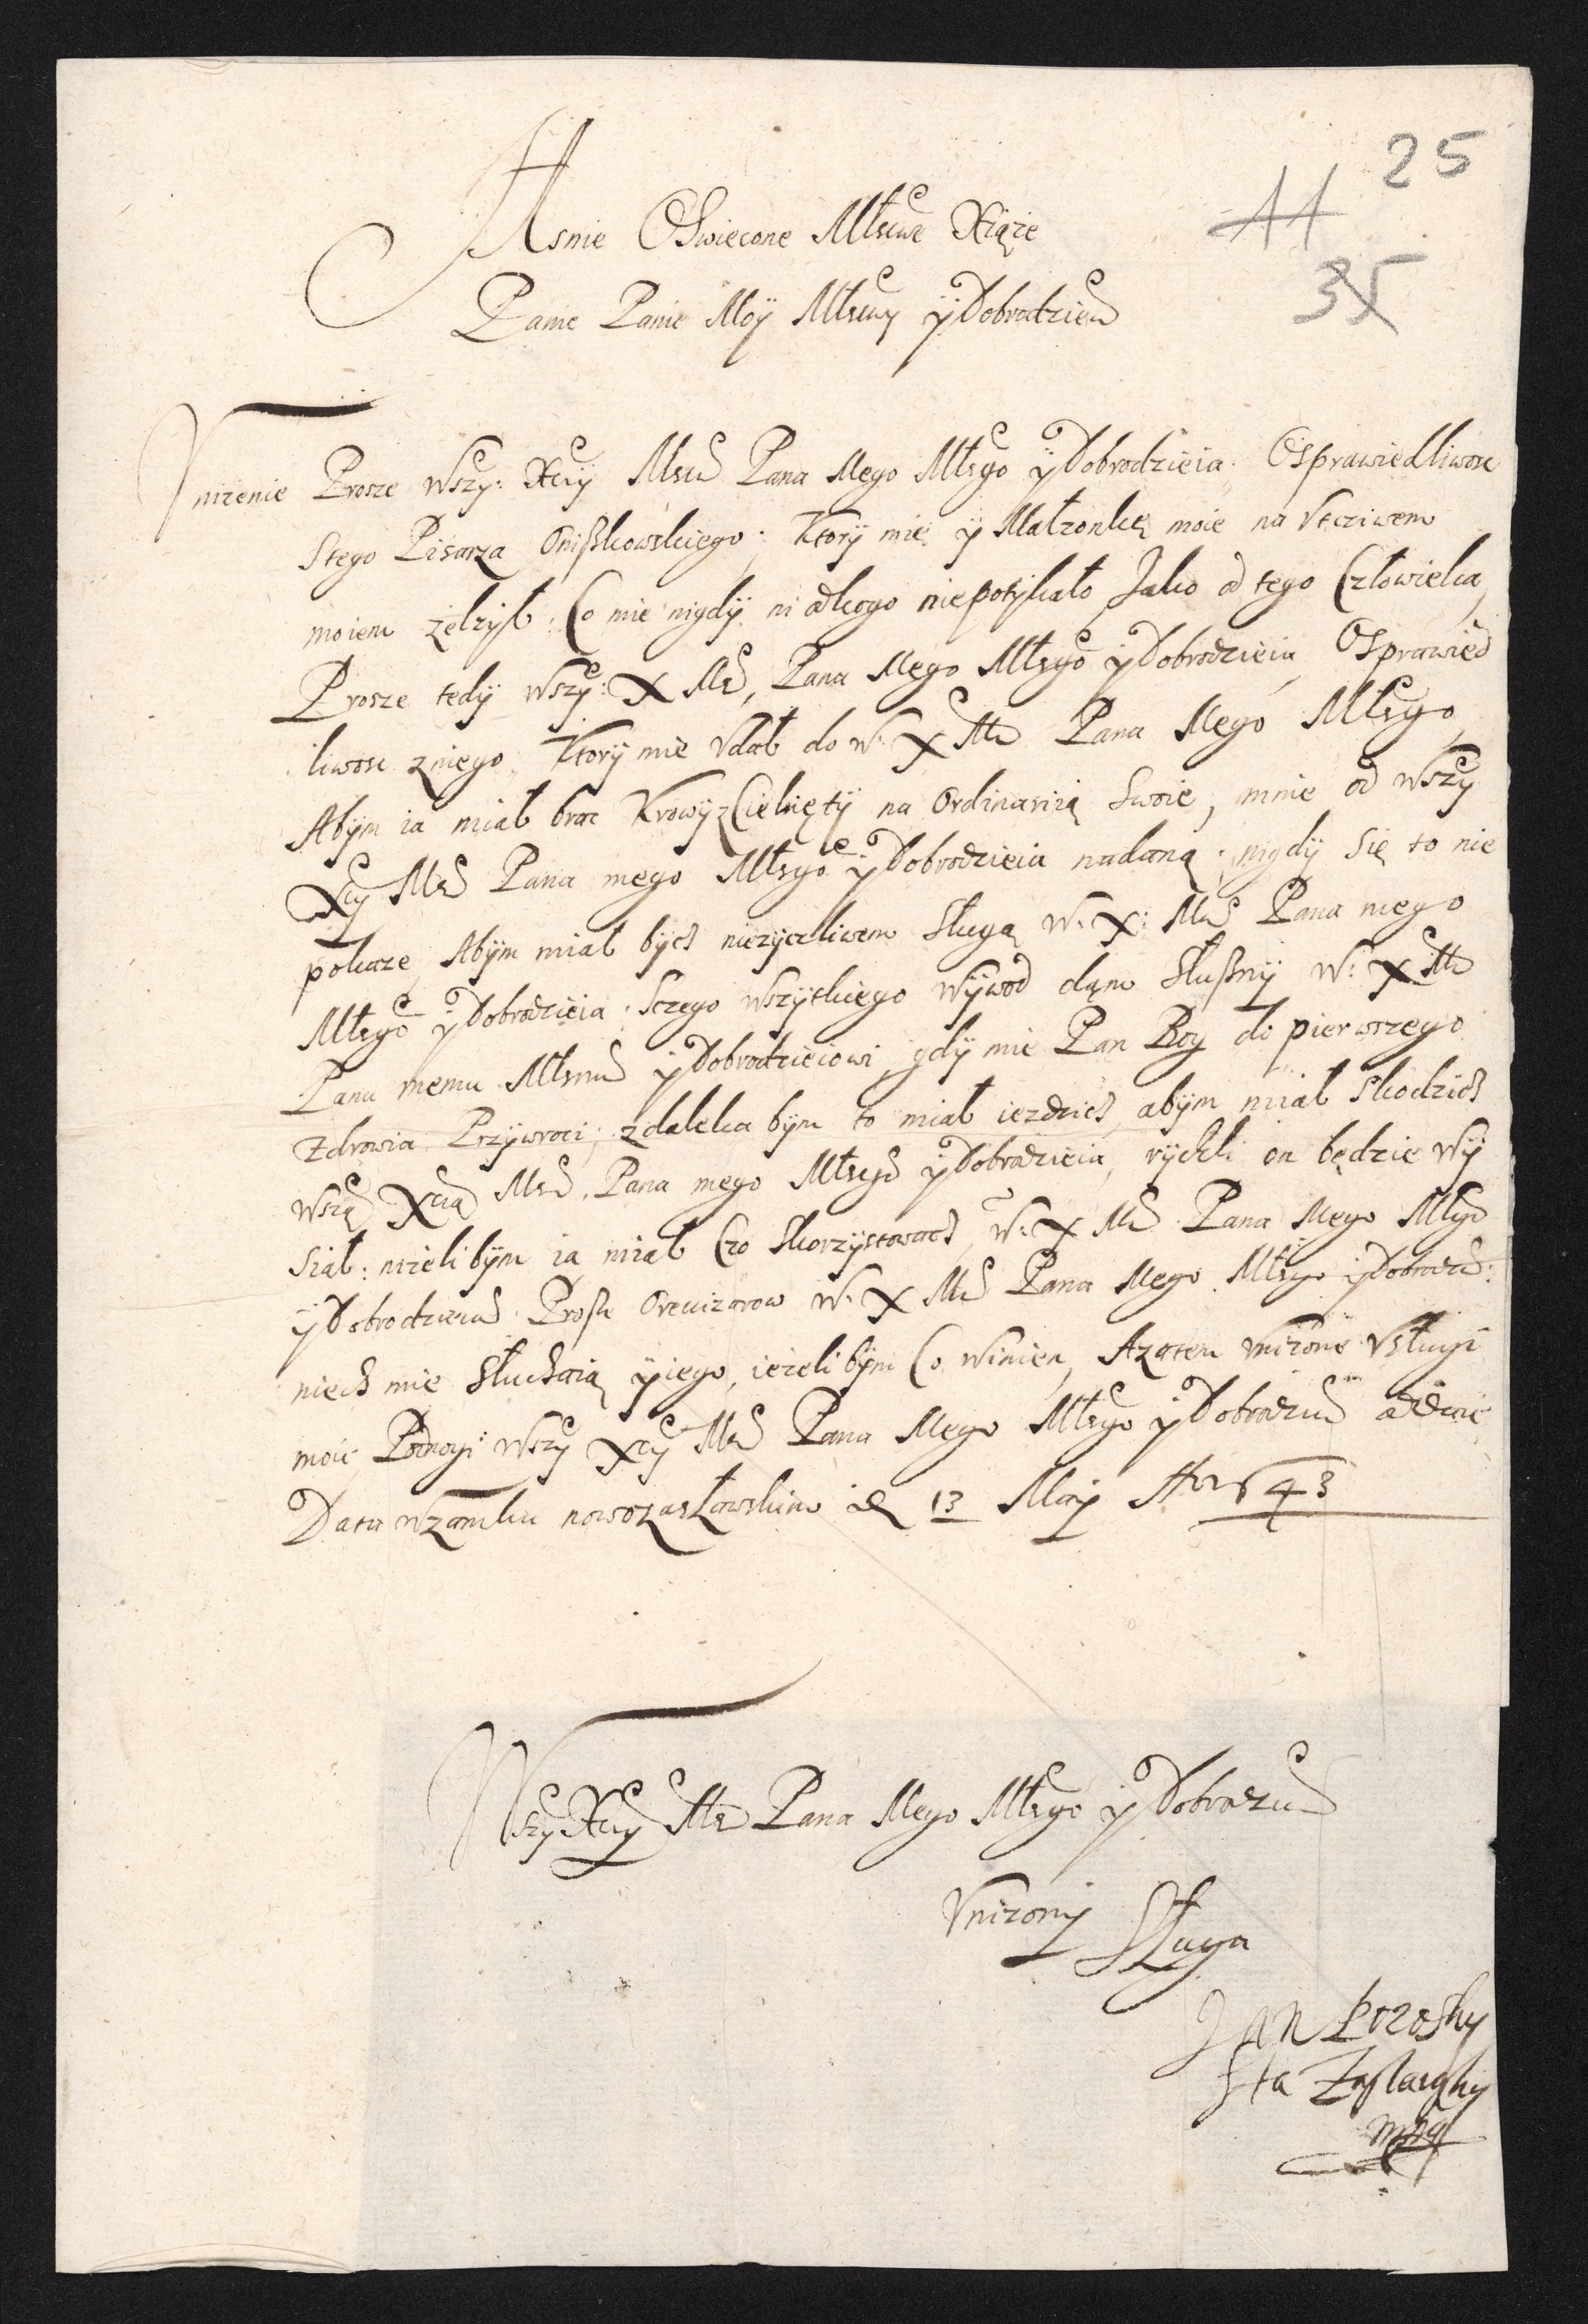 25
11
35
JAsnie OSwiecone Młsciwe Xiąże
Panie Panie Moÿ Młsciwy ÿ Dobrodzieiu
Vnizenie Prosze Wszÿ: Xcÿ Msci Pana Mego Młsgo ÿ Dobrodzieia. OSprawiedliwosc
Stego Pisarza Onißkowskiego; Ktorÿ mie ÿ Małzonkę moie na Vtcziwem
moiem zelzÿł. Co mie nigdÿ ni odkogo niepotÿkało Jako od tego Człowieka,
Prosze tedÿ Wszÿ: X Msci, Pana Mego Młsgo ÿ Dobrodzieia OSprawied
liwosc zniego, Ktorÿ mie Vdał do W: X Mci Pana Mego Młsgo,
Abÿm ia miał brac Krowÿ z Cielnętÿ na Ordinarią Swoie, mnie od Wszÿ
Xcÿ Msci Pana mego Młsgo ÿ Dobrodzieia nadaną; nigdÿ Się to nie
pokaze, Abÿm miał bÿch nieżÿczliwem Sługą W: X: Msci Pana mego
Młsgo ÿ Dobrodzieia; Sczego Wszÿtkiego Wÿwod dąm Słußnÿ W: X Mci
Panu memu Młsmu ÿ Dobrodzieiowi, gdÿ mie Pan Bog do pierwszego
Zdrowia Przÿwroci; zdaleka bÿm to miał iezdzich, abÿm miał Skodzich
Wszą Xcią Msci, Pana mego Młsgo ÿ Dobrodzieia, rÿchli on będzie Wÿ
siał: niżeli bÿm ia miał Czo Skorzÿstowach, W: X Mci Pana Mego Młsgo
ÿ Dobrodzieia. Proßę Orewizorow W: X Mci Pana Mego Młsgo ÿ Dobrodz:
niech mie Słuchaią ÿ iego, ieżeli bÿm Co Winien, Azatem Vnizone Vsługi
moie Podnogi Wszÿ Xcÿ Msci Pana Mego Młsgo ÿ Dobrodzia oddaię
Data Wzamku nowozasławskim de 13 Maij Ao 1643
Wszÿ Xcÿ Msci Pana Mego Młsgo ÿ Dobrodzia
Vnizonÿ
Sługa
Jan
Sta Zaslawsky
mpp